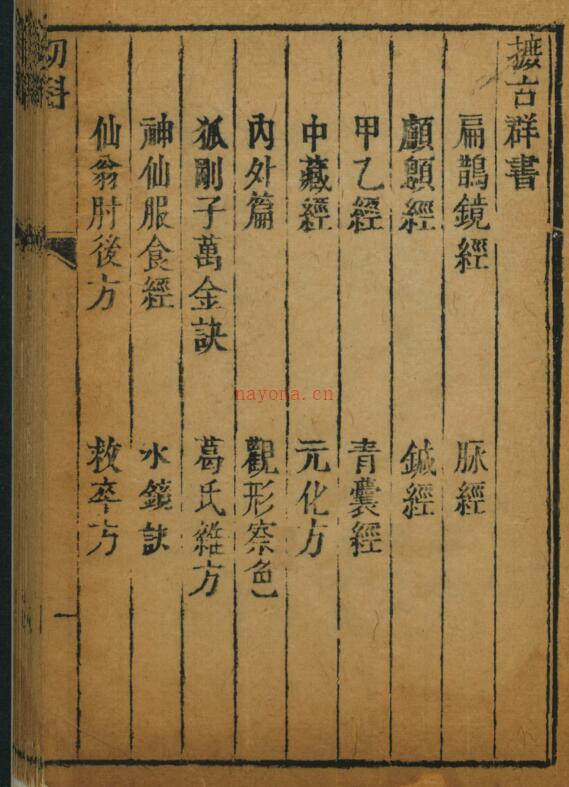 摭古群書
扁鵲鏡經 脉經
顱顖經 鍼經
甲乙經 青囊經
中藏經 元化方
內外篇 觀形察色
狐剛子萬金訣 葛氏雜方
神仙服食經 水鏡訣
仙翁肘後方 救卒方
幼科
一
nayona.cn